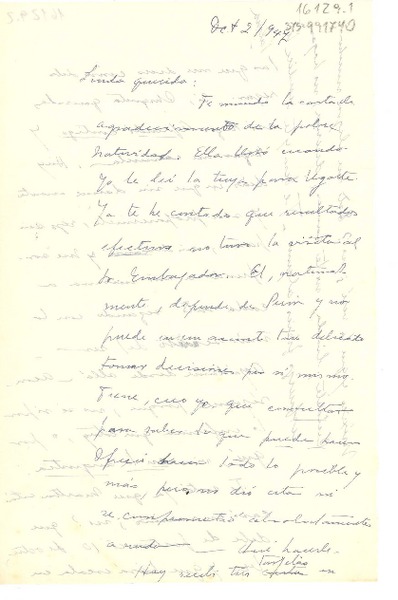 16129.1
Oct 2/949
Linda querida:
Te mando la carta de
agradecimiento de la pobre
Natividad. Ella lloró cuando
yo le leí la tuya para Ugarte.
Ya te he contado que resultados
efectivos no tuvo la visita al
Embajador. El, natural-
mente, depende de Perón y no
puede en un asunto tan delicado
tomar decisiones por sí mismo.
Tiene, creo yo que consultar
para saber lo que puede hacer.
Ofreció hacer todo lo posible y
más pero no dió cita ni
se comprometió absolutamente
a nada. hacerle.
Hoy recibí tres en